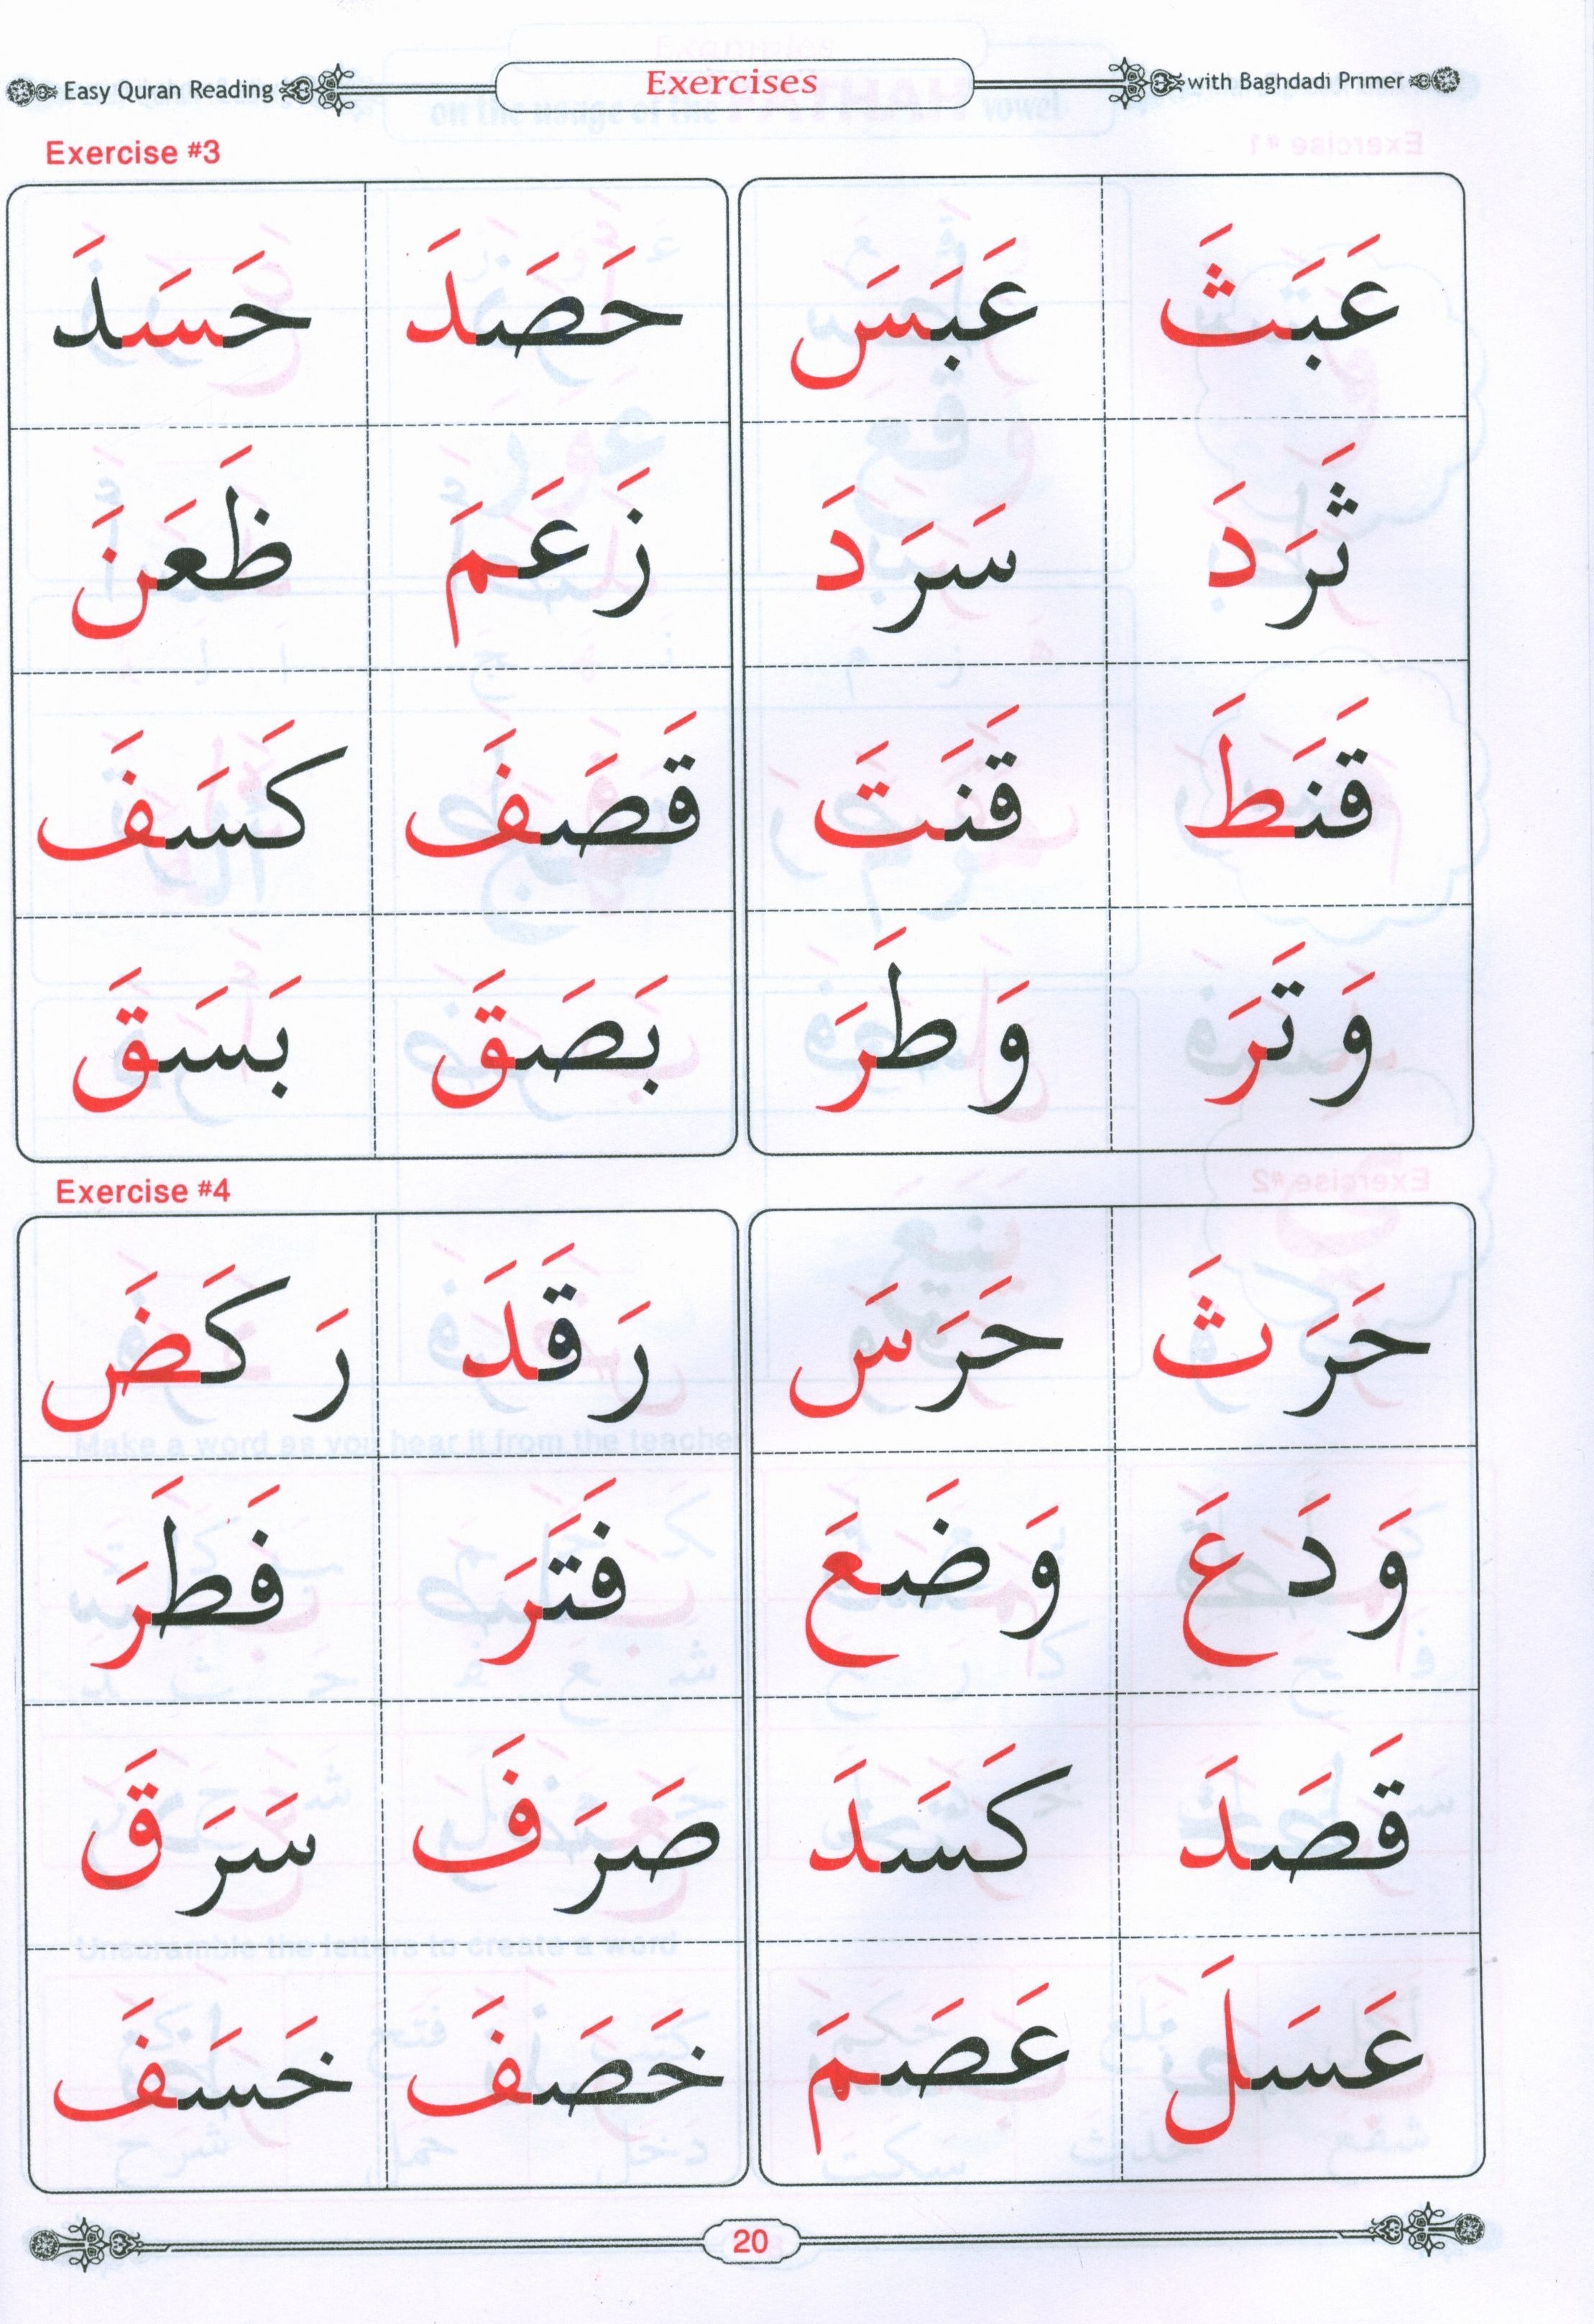 Easy Quran Reading Exercises with Baghdadi Primer
Exercise #3
عَبَثَ عَبَسَ حَصَدَ حَسَدَ
ثَرَدَ سَرَدَ زَعَمَ ظَعَنَ
قَنَطَ قَنَتَ قَصَفَ كَسَفَ
وَتَرَ وَطَرَ بَصَقَ بَسَقَ
Exercise #4
حَرَثَ حَرَسَ رَقَدَ رَكَضَ
وَدَعَ وَضَعَ فَتَرَ فَطَرَ
قَصَدَ كَسَدَ صَرَفَ سَرَقَ
عَسَلَ عَصَمَ خَصَفَ خَسَفَ
20